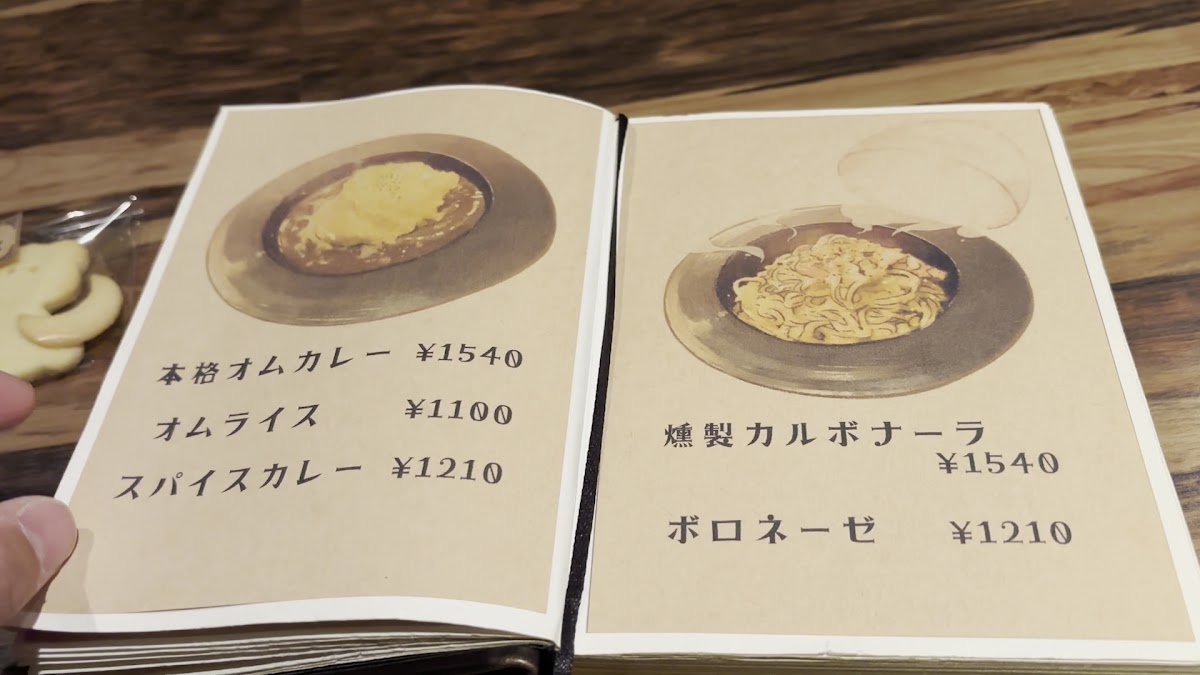 本格オムカレー ¥1540
オムライス ¥1100
スパイスカレー ¥1210
燻製カルボナーラ
¥1540
ボロネーゼ ¥1210